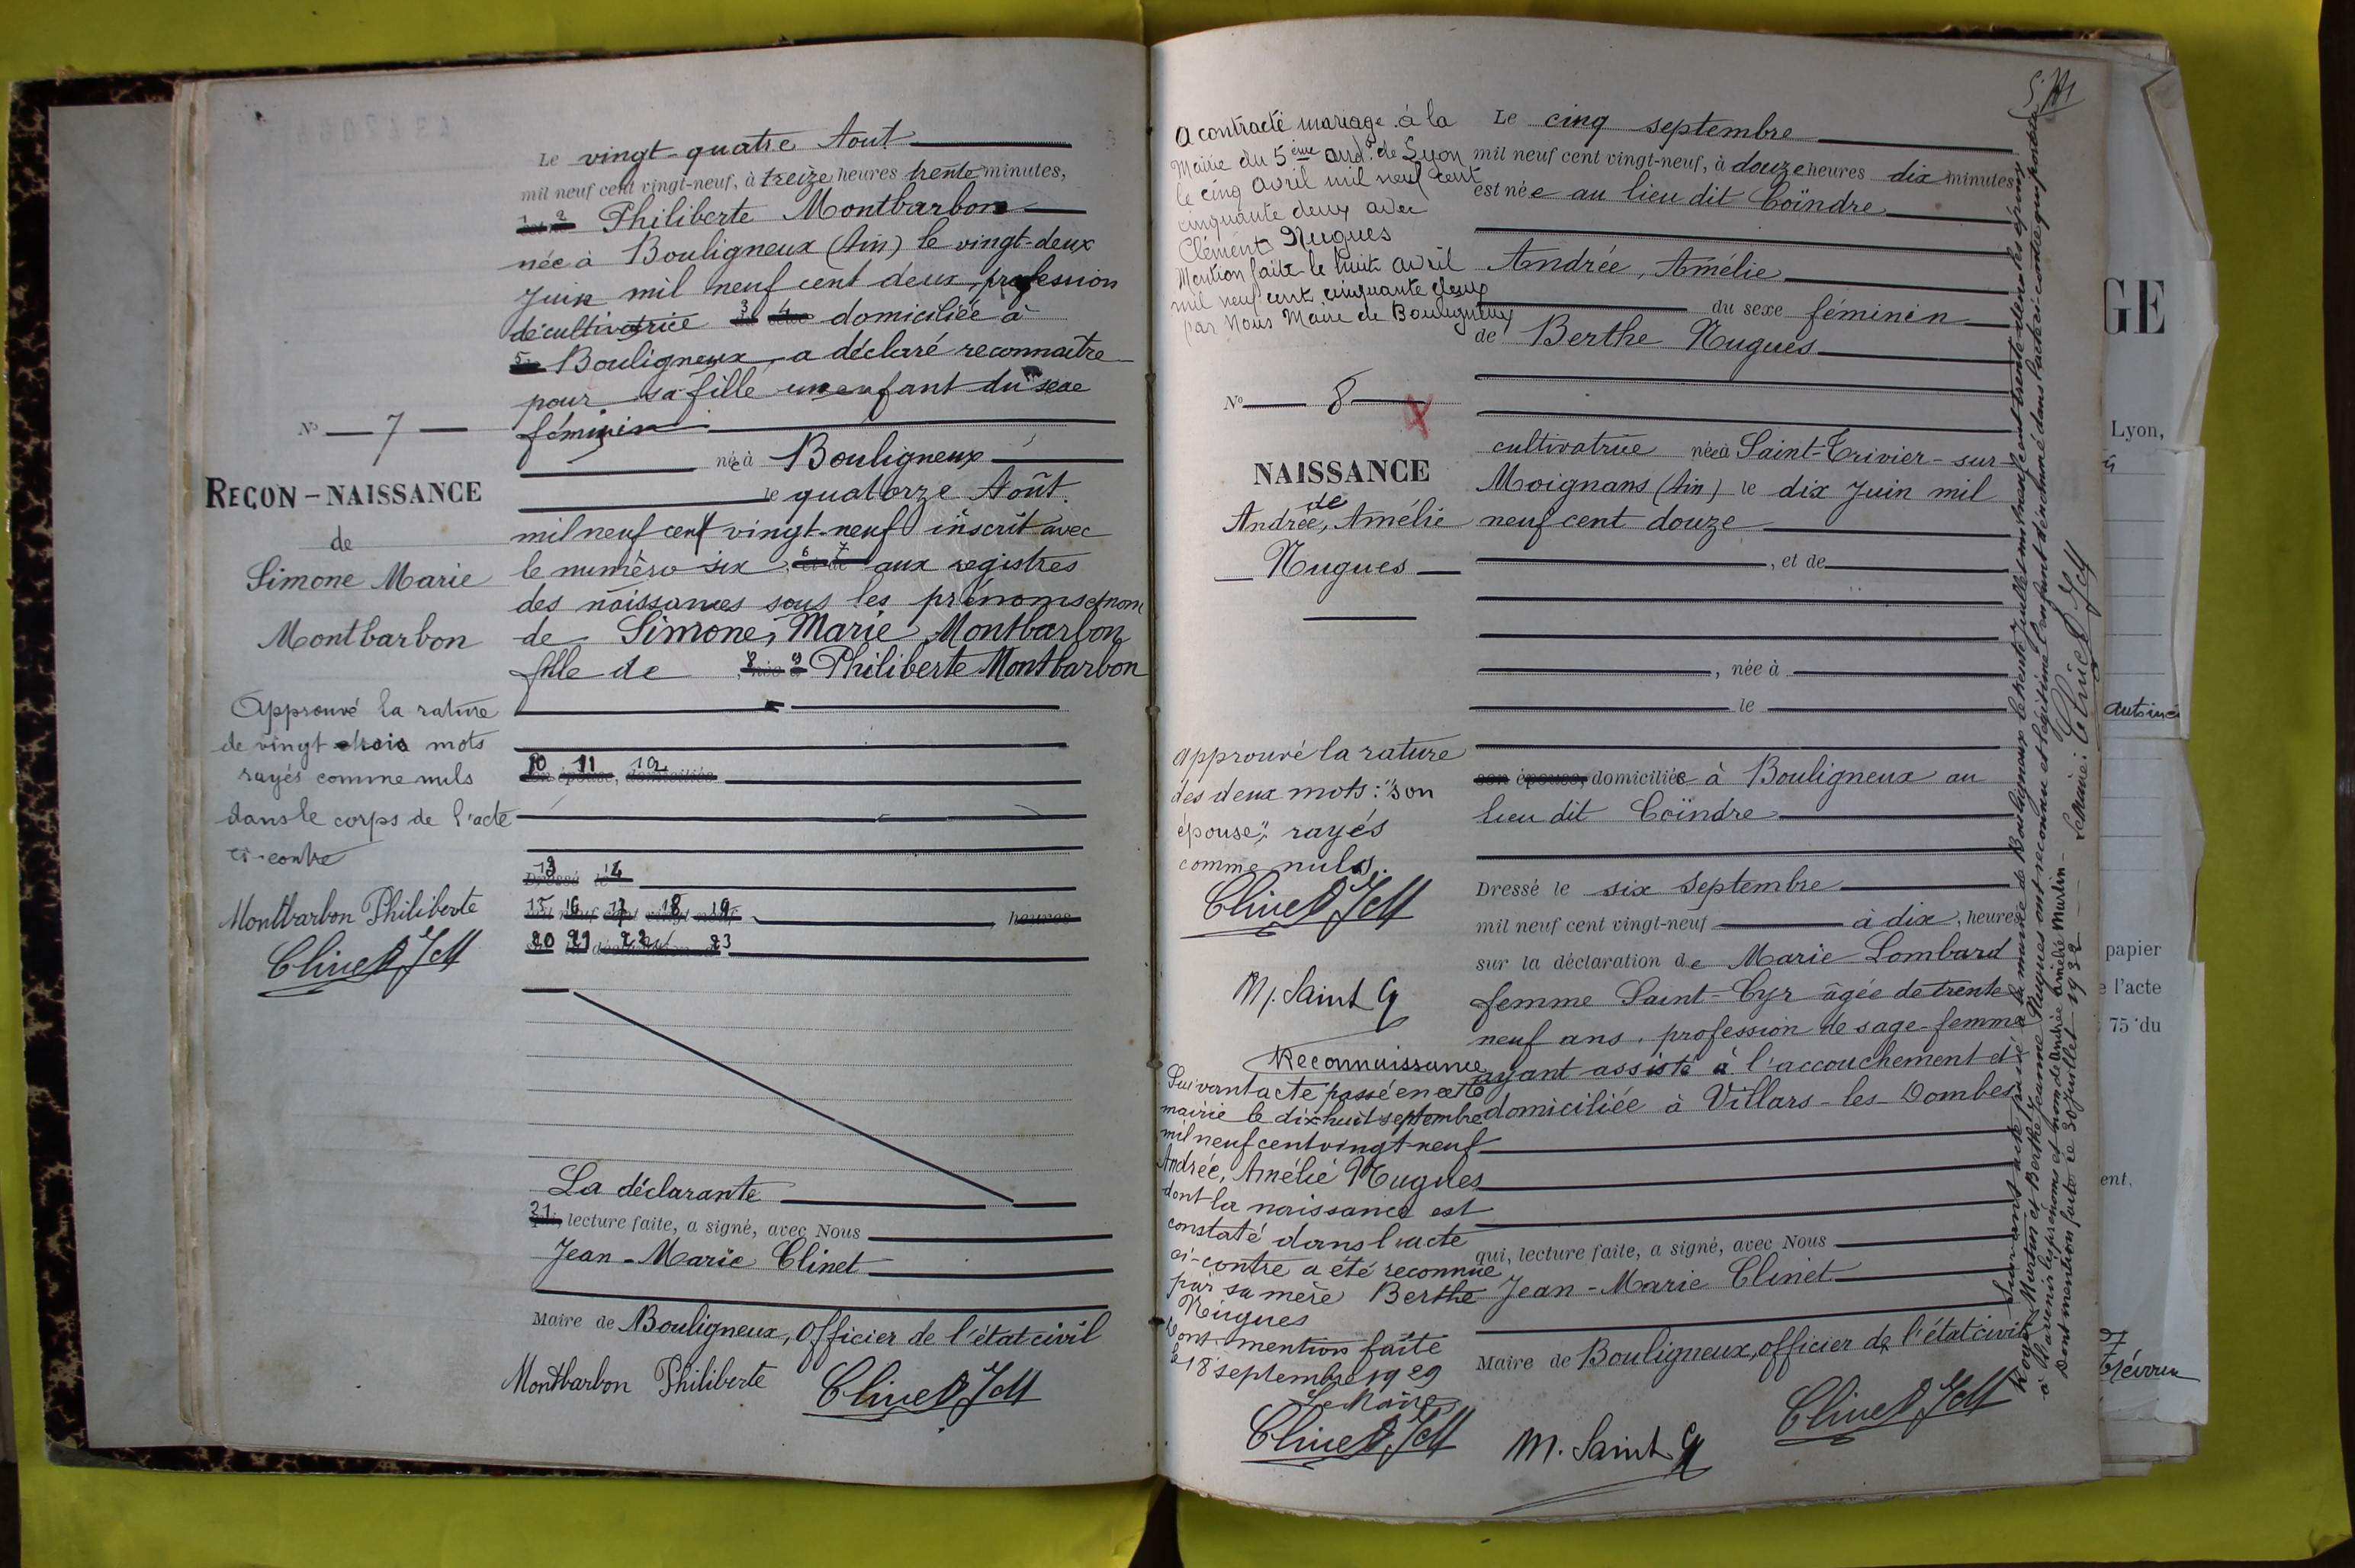 Le vingt-quatre Aout
mil neuf cent vingt-neuf, à treize heures trente minutes,
1 2 Philiberte Montbarbon
née à Bouligneux (Ain) le vingt-deux
Juin mil neuf cent deux, profession
de cultivatrice 3 4 domiciliée à
5 Bouligneux, a déclaré reconnaître
pour sa fille un enfant du sexe
féminin
née à Bouligneux
le quatorze Août
mil neuf cent vingt-neuf inscrit avec
le numéro six 6 7 aux registres
des naissances sous les prénoms et nom
de Simone, Marie Montbarbon
fille de 8 9 Philiberte Montbarbon
10 11 12
son épouse, domiciliée
13 14
Dressé le
15 16 17 18 19
mil neuf cent vingt-neuf heures
20 21 22 23
sur la déclaration d
La déclarante
21
qui, lecture faite, a signé, avec Nous
Jean-Marie Clinet
Maire de Bouligneux, Officier de l'état civil
Montbarbon Philiberte Clinet JM
N° 7
RECON-NAISSANCE
de
Simone Marie
Montbarbon
Approuvé la rature
de vingt trois mots
rayés comme nuls
dans le corps de l'acte
ci-contre
Montbarbon Philiberte
Clinet JM
A contracté mariage à la
Mairie du 5ème arrdt de Lyon
le cinq avril mil neuf cent
cinquante deux avec
Clément Nugues
Mention faite le huit avril
mil neuf cent cinquante deux
par Nous Maire de Bouligneux
N° 8
NAISSANCE
de
Andrée, Amélie
Nugues
approuvé la rature
des deux mots: "son
épouse", rayés
comme nuls.
Clinet JM
M. Saint Cy
Reconnaissance
Suivant acte passé en cette
mairie le dix huit septembre
mil neuf cent vingt-neuf
Andrée, Amélie Nugues
dont la naissance est
constaté dans l'acte
ci-contre a été reconnue
par sa mère Berthe
Nugues
Dont mention faite
le 18 septembre 1929
Le Maire
Clinet JM
Le cinq septembre
mil neuf cent vingt-neuf, à douze heures dix minutes
est née au lieu dit Coïndre
Andrée, Amélie
du sexe féminin
de Berthe Nugues
cultivatrice née à Saint-Trivier-sur-
Moignans (Ain) le dix Juin mil
neuf cent douze
, et de
, née à
le
son épouse, domiciliée à Bouligneux au
lieu dit Coïndre
Dressé le six Septembre
mil neuf cent vingt-neuf à dix, heures
sur la déclaration de Marie Lombard
femme Saint-Cyr âgée de trente
neuf ans, profession de sage-femme
ayant assisté à l'accouchement et
domiciliée à Villars-les-Dombes
qui, lecture faite, a signé, avec Nous
Jean-Marie Clinet
Maire de Bouligneux, officier de l'état civil
M. Saint Cy Clinet JM
Suivant acte passé à la mairie de Bouligneux le trente Juillet mil neuf cent trente deux les époux
Martin et Berthe Jeanne Nugues ont reconnu et légitimé l'enfant dénommé dans l'acte ci-contre qui portera
à l'avenir les prénoms et nom de Andrée Amélie Martin
Dont mention faite ce 30 Juillet 1932 Le Maire: Clinet JM
GE
Lyon,
papier
l'acte
75 du
ent.